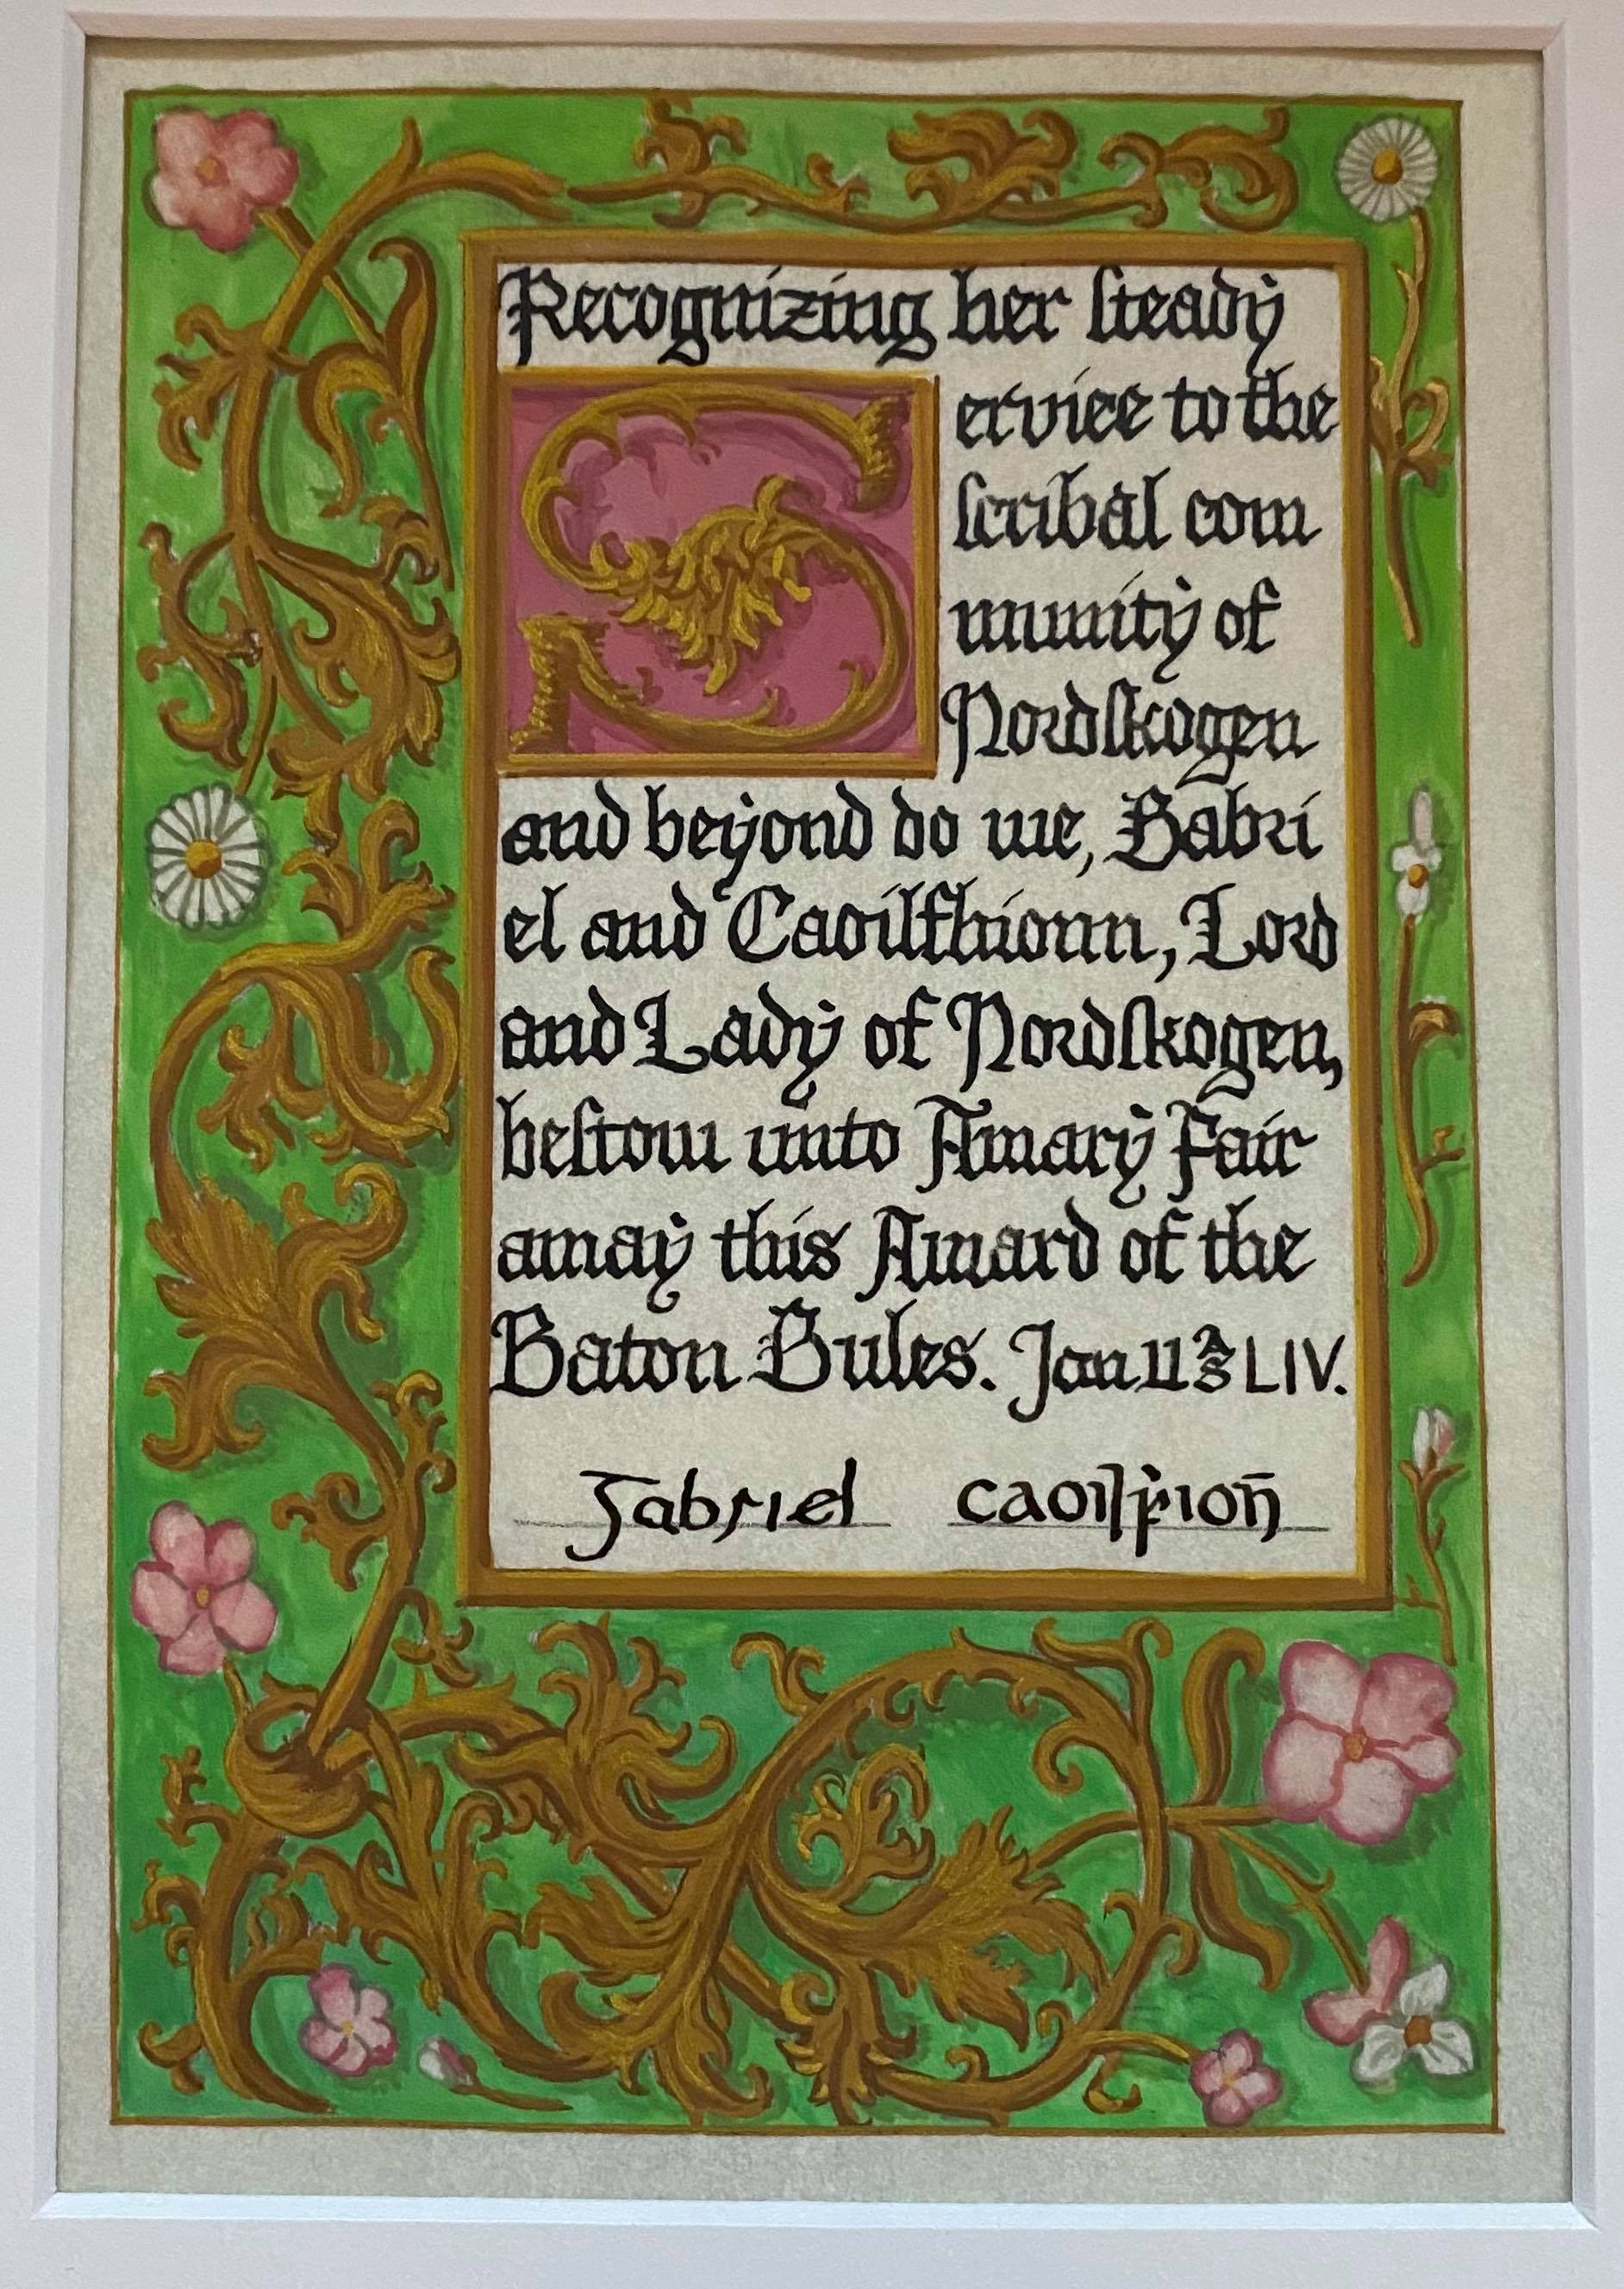 Recognizing her steady
Service to the
scribal com
munity of
Nordskogen
and beyond do we, Gabri
el and Caoilfhionn, Lord
and Lady of Nordskogen,
bestow unto Amary Fair
amay this Award of the
Baton Gules. Jan 11 AS LIV.
Gabriel caoilfion̄